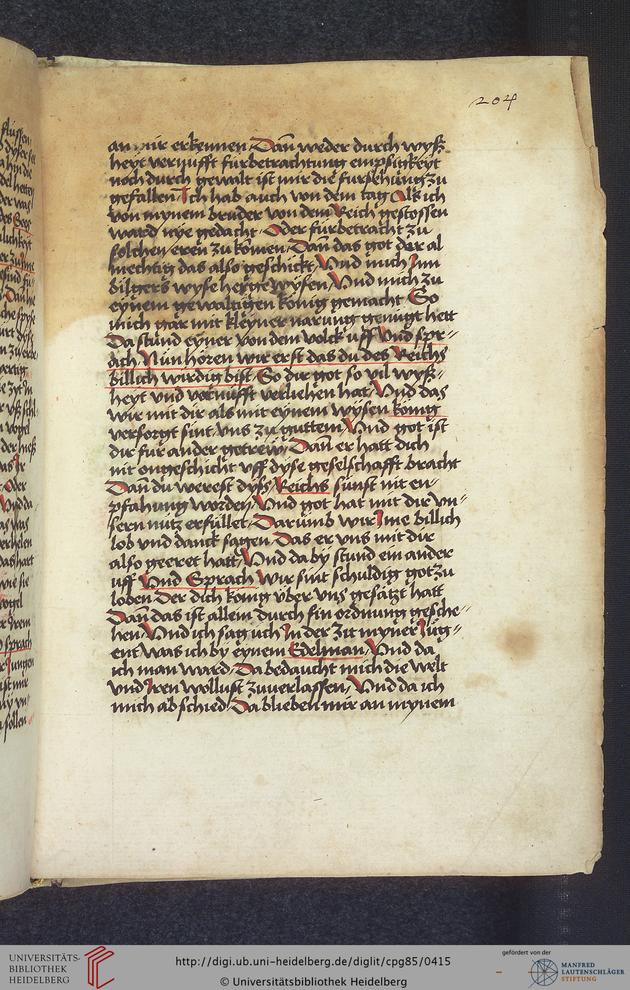 204
an mir erkennen Dann weder durch wyß
heyt vernufft fürbetrachtung empsitgkeyt
noch durch gewalt ist mir die fursehung zu
gefallen Ich hab auch von dem tag Als ich
von mynem bruder von dem Reich gestossen
ward nye gedacht Oder fürbetracht zu
solchen eren zu komen Dann das got der al
mechtig das also geschickt Vnd mich Inn
bilgers wyse heyst wysen Vnd mich zu
eynem gewaltigen konig gemacht So
mich gar mit kleyner narung genügt hett
Da stund eyner von dem volck uff Vnd spr-
ach Nun horen wir erst das du des Reichs
billich wirdig bist So dir got so vil wyß-
heyt vnd vernufft verliehen hat Vnd das
wir mit dir als mit eynem wysen konig
versorgt sint vns zu guttem Vnd got ist
dir für ander getrew Dann er hatt dich
nit ongeschicht uff dyse geselschafft bracht
Dann du werest dyß Reichs sunst nit en-
pfahung worden Vnd got hat mit dir vn-
sern nutz erfüllet Darumb wir Ime billich
lob vnd danck sagen Das er vns mit dir
also geeret hatt Vnd da by stund ein ander
uff Vnd Sprach wir sint schuldig got zu
loben Der dich konig über vns gesatzt hatt
Dann das ist allein durch sin ordnung gesche-
hen Vnd ich sag uch In der zit myner Jüg-
ent was ich by eynem Edelman Vnd da
ich man ward Da bedaucht mich die welt
vnd Iren wollust zuuerlassen Vnd da ich
mich abschied Da blieben mir an mynem
UNIVERSITÄTS-
BIBLIOTHEK
HEIDELBERG
http://digi.ub.uni-heidelberg.de/diglit/cpg85/0415
© Universitätsbibliothek Heidelberg
gefördert von der
MANFRED
LAUTENSCHLÄGER
STIFTUNG